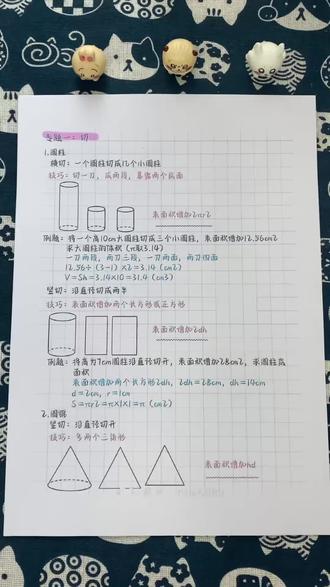 专题一：切
1.圆柱
横切：一个圆柱切成几个小圆柱
技巧：切一刀，成两段，暴露两个底面
表面积增加2πr2
例题：将一个高10cm大圆柱切成三个小圆柱，表面积增加12.56cm2
求大圆柱的体积（π取3.14）
一刀两段，两刀三段，一刀两面，两刀四面
12.56÷(3-1)×2=3.14(cm2)
V=Sh=3.14×10=31.4(cm2)
竖切：沿直径切成两半
技巧：表面积增加两个长方形或正方形
表面积增加2dh
例题：将高为7cm圆柱沿直径切开，表面积增加28cm2，求圆柱底
面积
表面积增加两个长方形2dh，2dh=28cm，dh=14cm
d=2cm，r=1cm
S=πr2=π×1×1=π(cm2)
2.圆锥
竖切：沿直径切开
技巧：多两个三角形
表面积增加hd